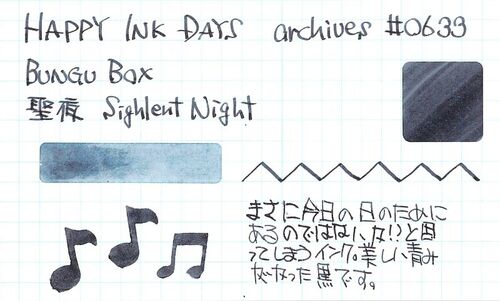 HAPPY INK DAYS archives #0633
BUNGU BOX
聖夜 Sighlent Night
まさに今日の日のために
あるのではないかな!?と思
ってしまうインク。美しい青み
がかった黒です。